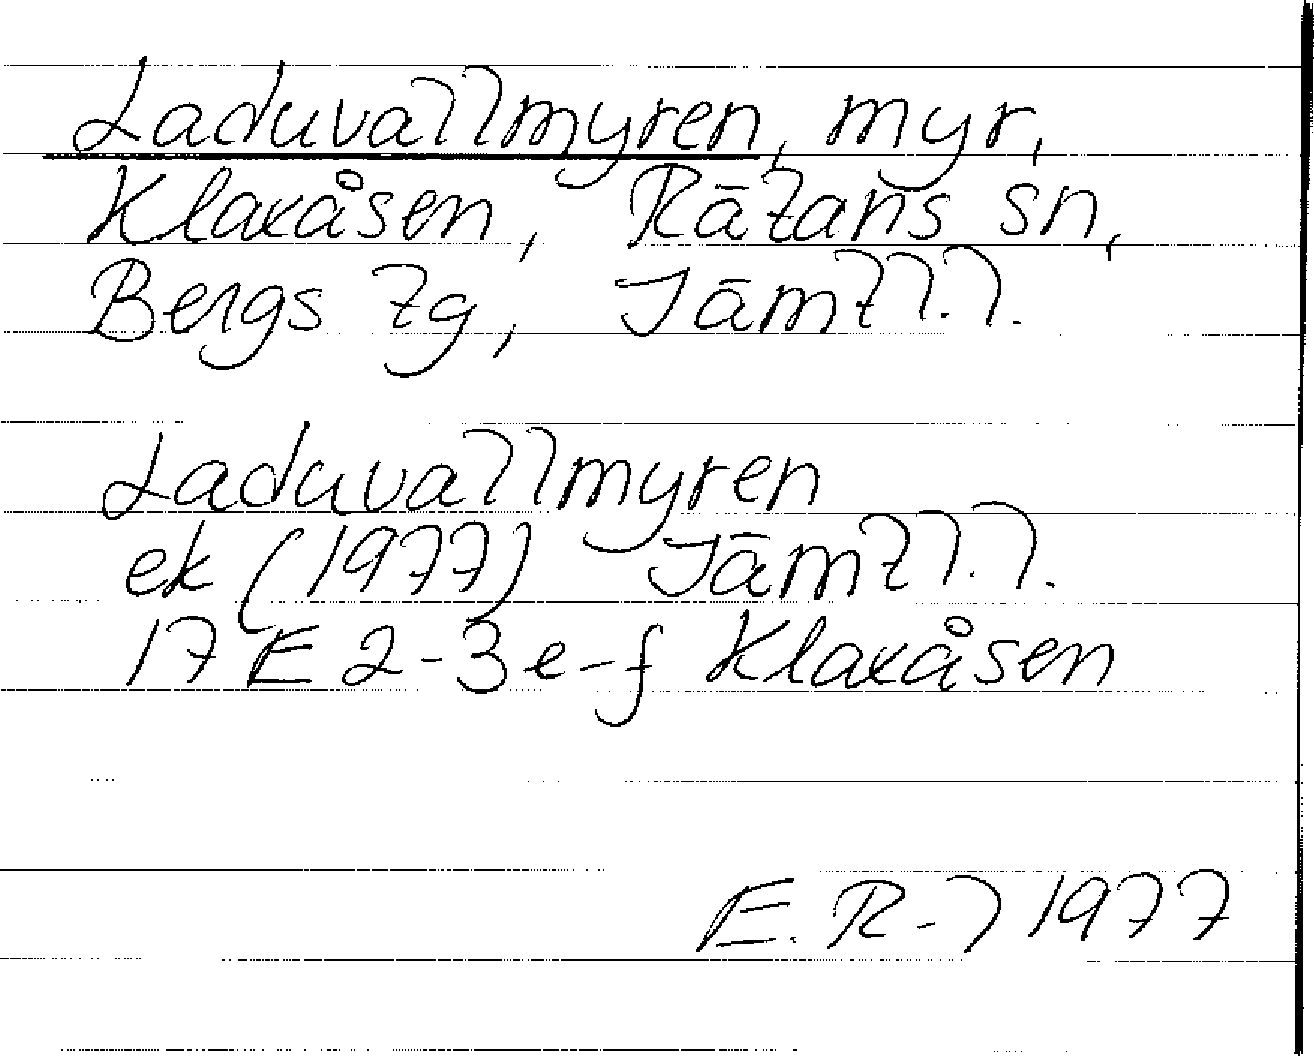 Laduvallmyren, myr,
Klaxåsen, Rätans sn,
Bergs tg, Jämtl.l.
Laduvallmyren
ek (1977) Jämtl.l.
17 E 2-3 e-f Klaxåsen
E. R-l 1977